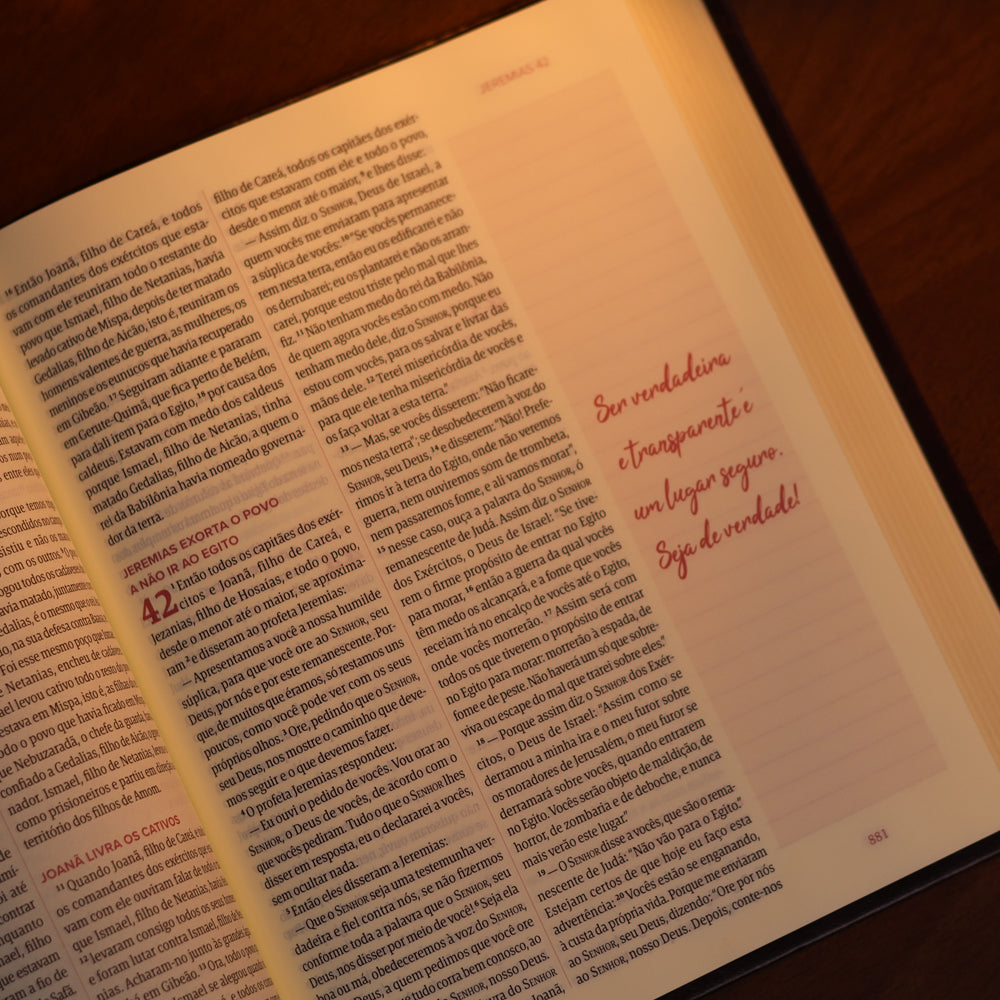 orque temos
escondidos no cam
sistiu e não os ma
com os outros.
ogou todos os cadáveres
avia matado, juntamente
edalias, é o mesmo que o rei
na sua defesa contra Baasa
Foi esse mesmo poço que Ismael
Netanias, encheu de cadáveres
ael levou cativo todo o resto do
estava em Mispa, isto é, as filhas do
odo o povo que havia ficado em Mispa
ue Nebuzaradã, o chefe da guarda
confiado a Gedalias, filho de Aicão
nador. Ismael, filho de Netanias, levou
como prisioneiros e partiu em direção
território dos filhos de Amom.
JOANÃ LIVRA OS CATIVOS
11 Quando Joanã, filho de Careá, e
os comandantes dos exércitos que
vam com ele ouviram falar de todo
que Ismael, filho de Netanias, havia
12 levaram consigo todos os seus
e foram lutar contra Ismael, filho de
nias. Acharam-no junto às grandes
em Gibeão. 13 Ora, todo o povo
Ismael se alegrou quando
16 Então Joanã, filho de Careá, e todos
os comandantes dos exércitos que esta-
vam com ele reuniram todo o restante do
povo que Ismael, filho de Netanias, havia
levado cativo de Mispa, depois de ter matado
Gedalias, filho de Aicão, isto é, reuniram os
homens valentes de guerra, as mulheres, os
meninos e os eunucos que havia recuperado
em Gibeão. 17 Seguiram adiante e pararam
em Gerute-Quimã, que fica perto de Belém,
para dali irem para o Egito, 18 por causa dos
caldeus. Estavam com medo dos caldeus
porque Ismael, filho de Netanias, tinha
matado Gedalias, filho de Aicão, a quem o
rei da Babilônia havia nomeado governa-
dor da terra.
JEREMIAS EXORTA O POVO
A NÃO IR AO EGITO
42 1 Então todos os capitães dos exér-
citos e Joanã, filho de Careá, e
Jezanias, filho de Hosaías, e todo o povo,
desde o menor até o maior, se aproxima-
ram 2 e disseram ao profeta Jeremias:
— Apresentamos a você a nossa humilde
súplica, para que você ore ao SENHOR, seu
Deus, por nós e por este remanescente. Por-
que, de muitos que éramos, só restamos uns
poucos, como você pode ver com os seus
próprios olhos. 3 Ore, pedindo que o SENHOR,
seu Deus, nos mostre o caminho que deve-
mos seguir e o que devemos fazer.
4 O profeta Jeremias respondeu:
— Eu ouvi o pedido de vocês. Vou orar ao
SENHOR, o Deus de vocês, de acordo com o
que vocês pediram. Tudo o que o SENHOR lhes
disser em resposta, eu o declararei a vocês,
sem ocultar nada.
5 Então eles disseram a Jeremias:
— Que o SENHOR seja uma testemunha ver-
dadeira e fiel contra nós, se não fizermos
conforme toda a palavra que o SENHOR, seu
Deus, nos disser por meio de você! 6 Seja ela
boa ou má, obedeceremos à voz do SENHOR,
Deus, a quem pedimos que você ore
tudo corra bem conosco, ao
SENHOR, nosso Deus.
JEREMIAS 42
filho de Careá, todos os capitães dos exér-
citos que estavam com ele e todo o povo,
desde o menor até o maior, 9 e lhes disse:
— Assim diz o SENHOR, Deus de Israel, a
quem vocês me enviaram para apresentar
a súplica de vocês: 10 "Se vocês permanece-
rem nesta terra, então eu os edificarei e não
os derrubarei; eu os plantarei e não os arran-
carei, porque estou triste pelo mal que lhes
fiz. 11 Não tenham medo do rei da Babilônia,
de quem agora vocês estão com medo. Não
tenham medo dele, diz o SENHOR, porque eu
estou com vocês, para os salvar e livrar das
mãos dele. 12 Terei misericórdia de vocês,
para que ele tenha misericórdia de vocês e
os faça voltar a esta terra."
13 — Mas, se vocês disserem: "Não ficare-
mos nesta terra"; se desobedecerem à voz do
SENHOR, seu Deus, 14 e disserem: "Não! Prefe-
rimos ir à terra do Egito, onde não veremos
guerra, nem ouviremos som de trombeta,
nem passaremos fome, e ali vamos morar",
15 nesse caso, ouça a palavra do SENHOR, ó
remanescente de Judá. Assim diz o SENHOR
dos Exércitos, o Deus de Israel: "Se tive-
rem o firme propósito de entrar no Egito
para morar, 16 então a guerra da qual vocês
têm medo os alcançará, e a fome que vocês
receiam irá no encalço de vocês até o Egito,
onde vocês morrerão. 17 Assim será com
todos os que tiverem o propósito de entrar
no Egito para morar: morrerão à espada, de
fome e de peste. Não haverá um só que sobre-
viva ou escape do mal que trarei sobre eles."
18 — Porque assim diz o SENHOR dos Exér-
citos, o Deus de Israel: "Assim como se
derramou a minha ira e o meu furor sobre
os moradores de Jerusalém, o meu furor se
derramará sobre vocês, quando entrarem
no Egito. Vocês serão objeto de maldição, de
horror, de zombaria e de deboche, e nunca
mais verão este lugar."
19 — O SENHOR disse a vocês, que são o rema-
nescente de Judá: "Não vão para o Egito."
Estejam certos de que hoje eu faço esta
advertência: 20 Vocês estão se enganando,
à custa da própria vida. Porque me enviaram
ao SENHOR, seu Deus, dizendo: "Ore por nós
ao SENHOR, nosso Deus. Depois, conte-nos
Ser verdadeira
e transparente é
um lugar seguro.
Seja de verdade!
881